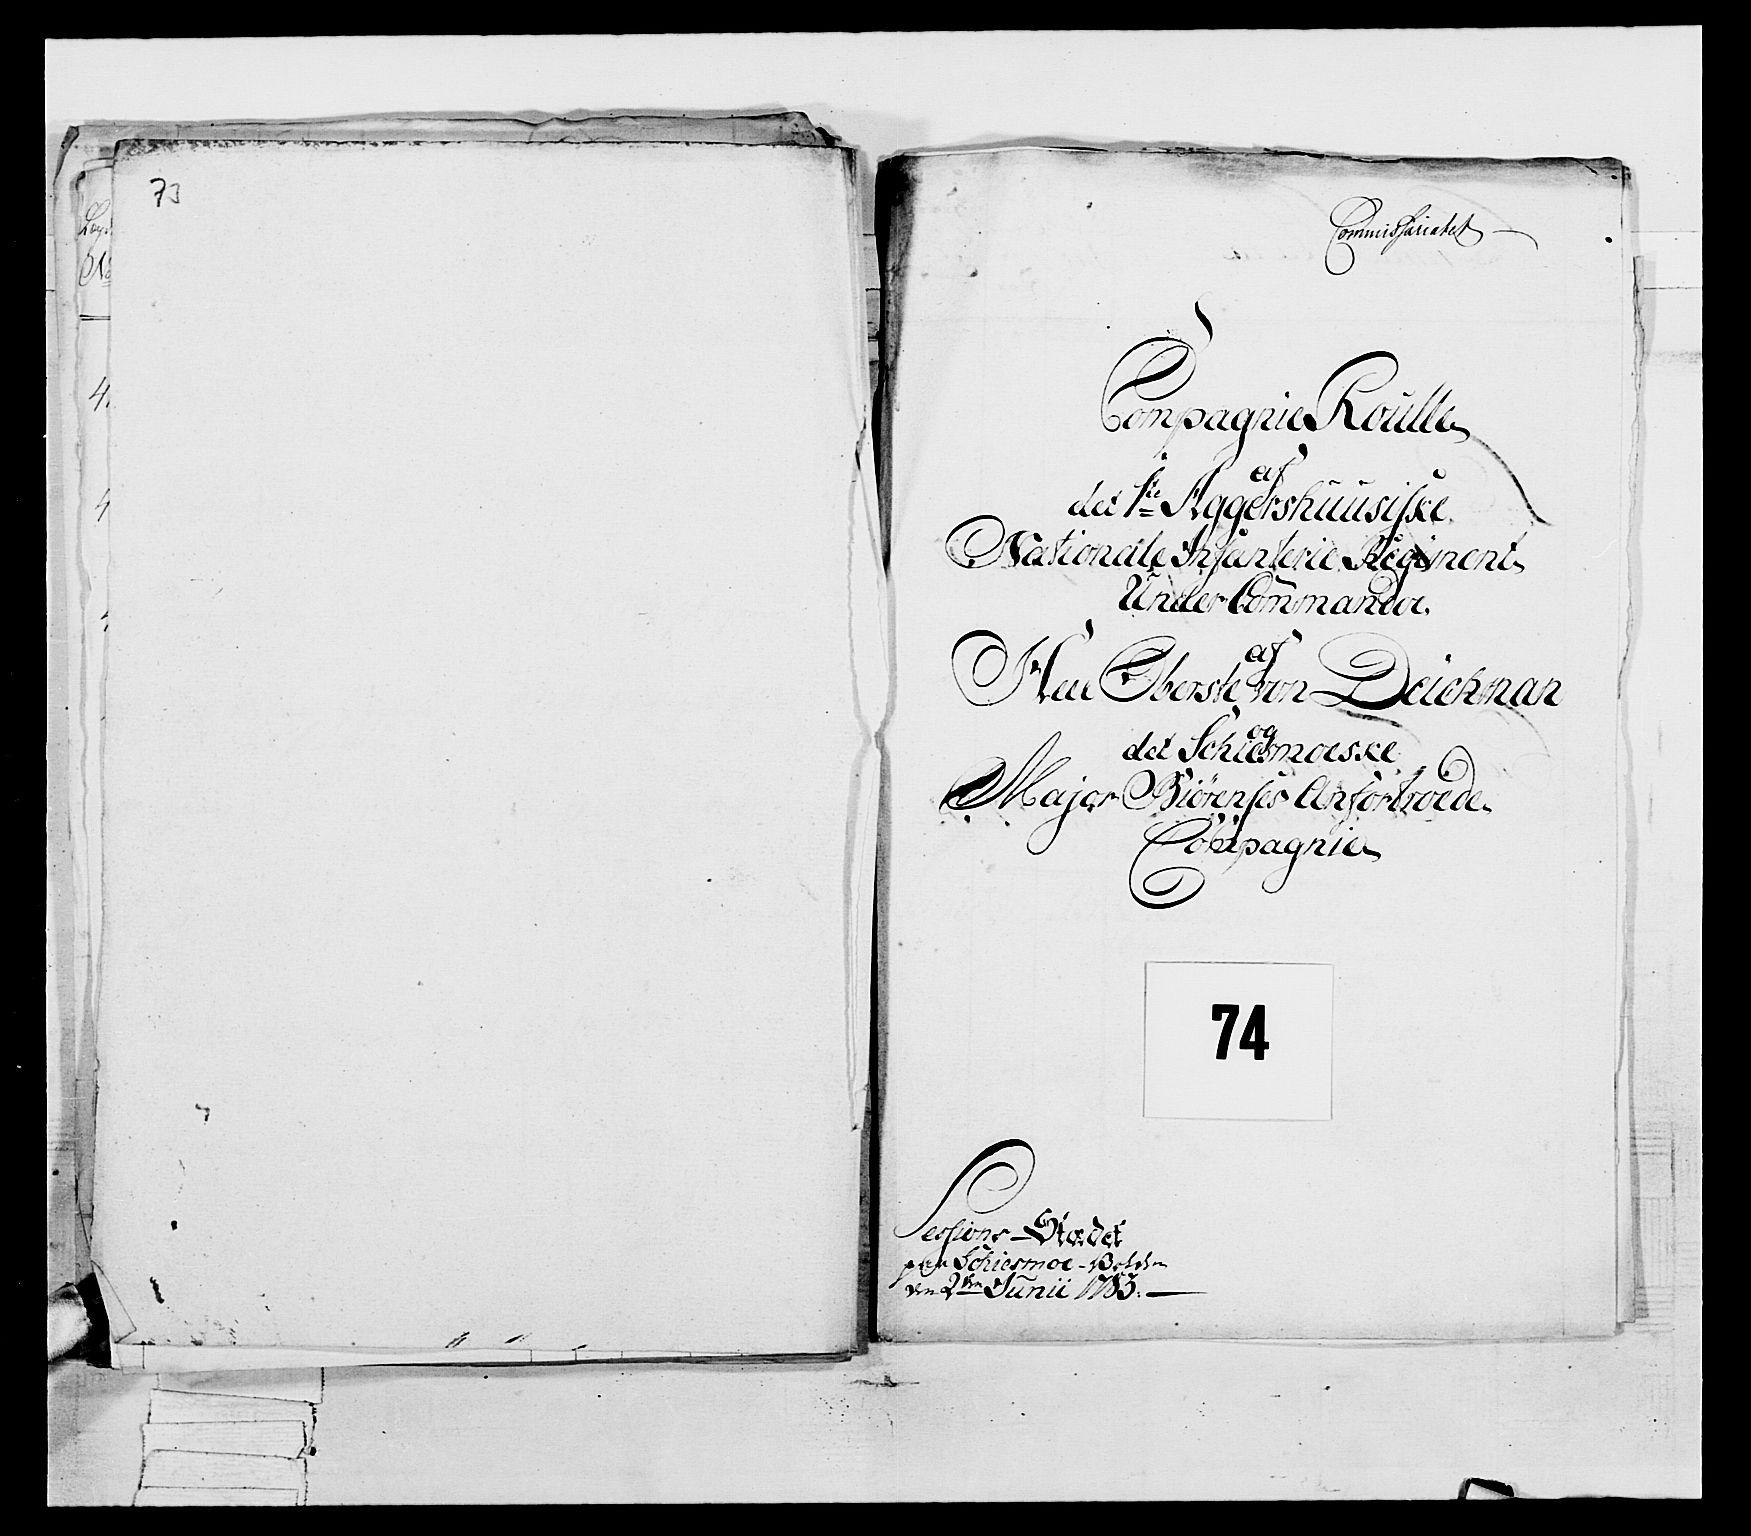 73
Commissariatet
Compagnie Roulle
af
det 1te Aggershuusiske
Nationale Infanterie Regiment
Under Commando
af
Herr Oberste von Deichman
og
det Schiesmoeske
Major Biørenses Anfortroede
Compagnie
74
Sessions-Stædet
paa Schiesmoe-Volden
den 2den Junii 1783.